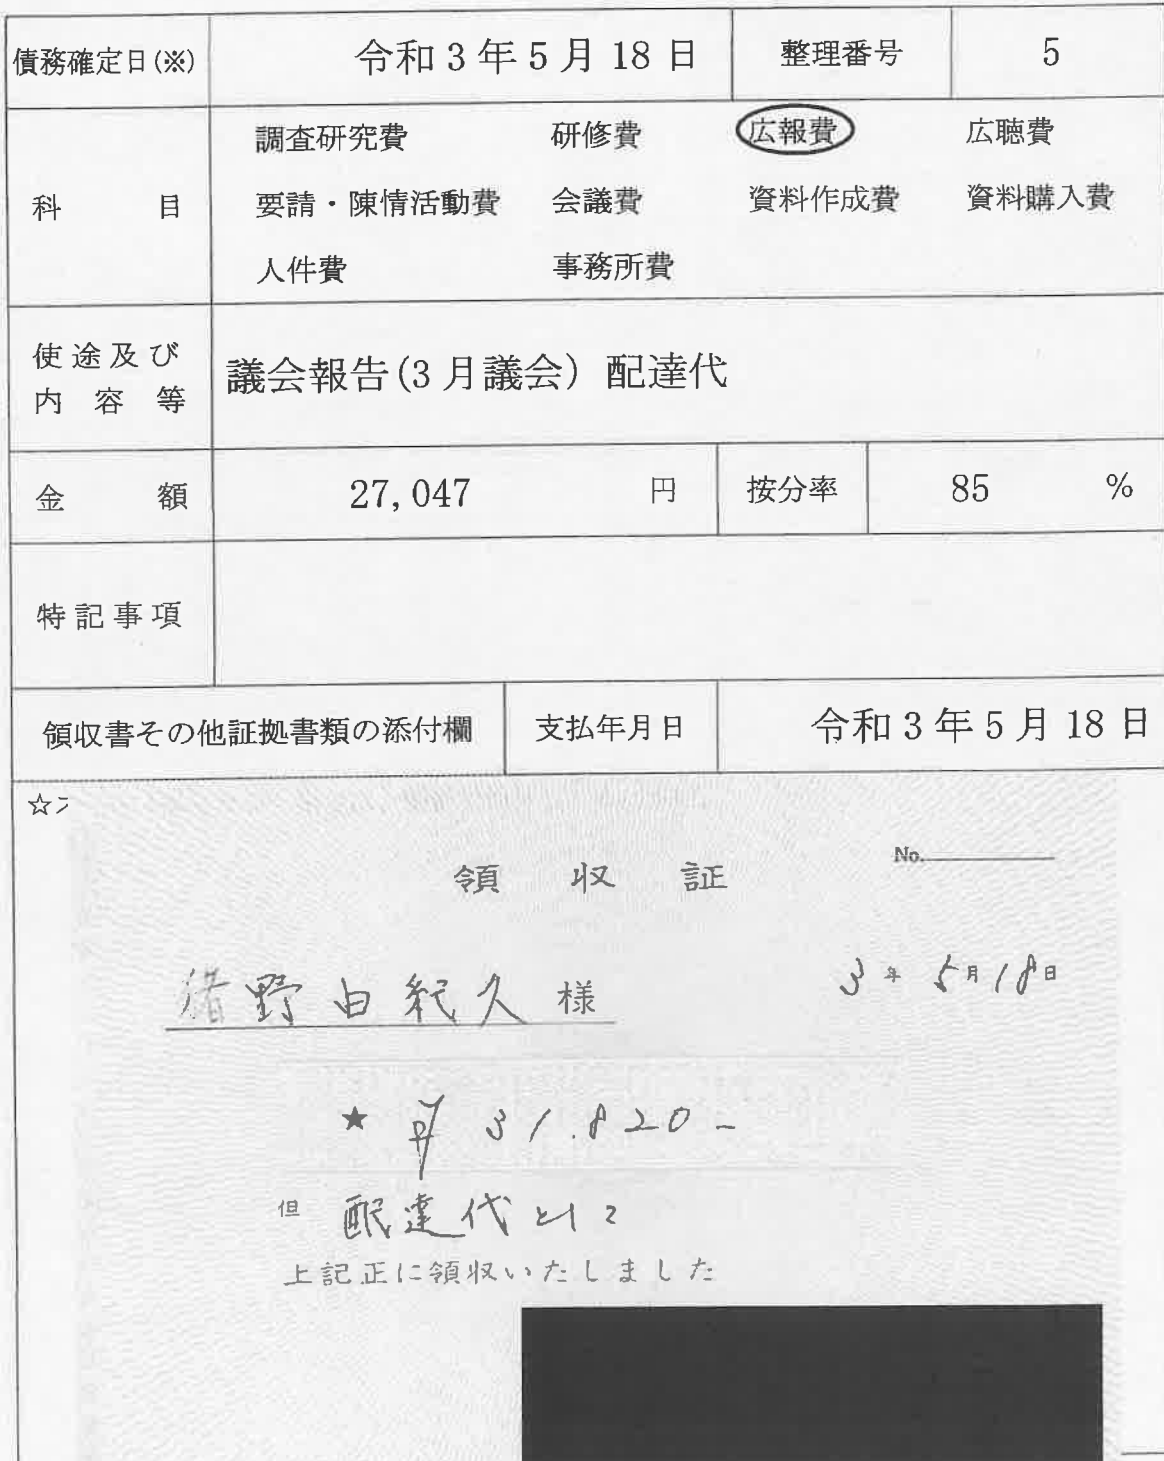 債務確定日(※) 令和3年5月18日 整理番号 5
科目 調査研究費 研修費 広報費 広聴費
要請・陳情活動費 会議費 資料作成費 資料購入費
人件費 事務所費
使途及び内容等 議会報告(3月議会) 配達代
金額 27,047 円 按分率 85 %
特記事項
領収書その他証拠書類の添付欄 支払年月日 令和3年5月18日
☆
領収証 No.
猪野由紀久様 3年5月18日
★ ¥31.820-
但 配達代として
上記正に領収いたしました